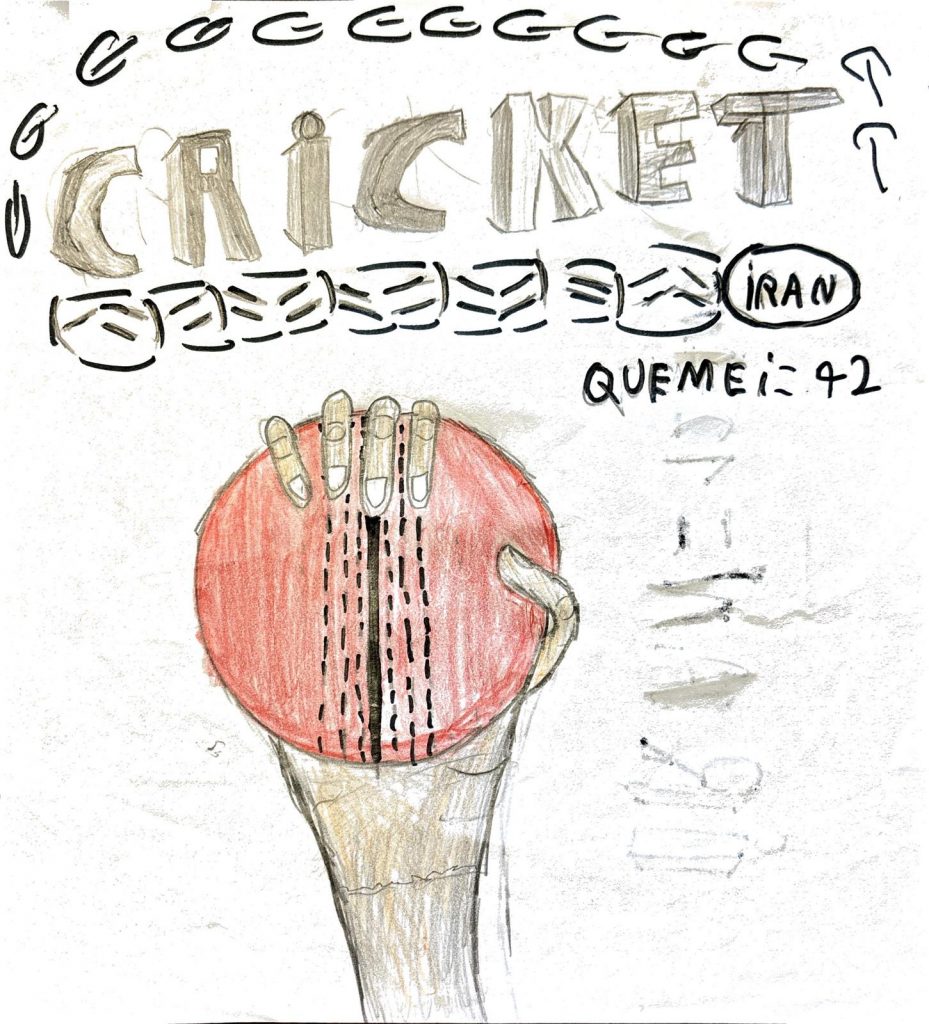 CRiCKET
iRAN
QUEMEi= 42